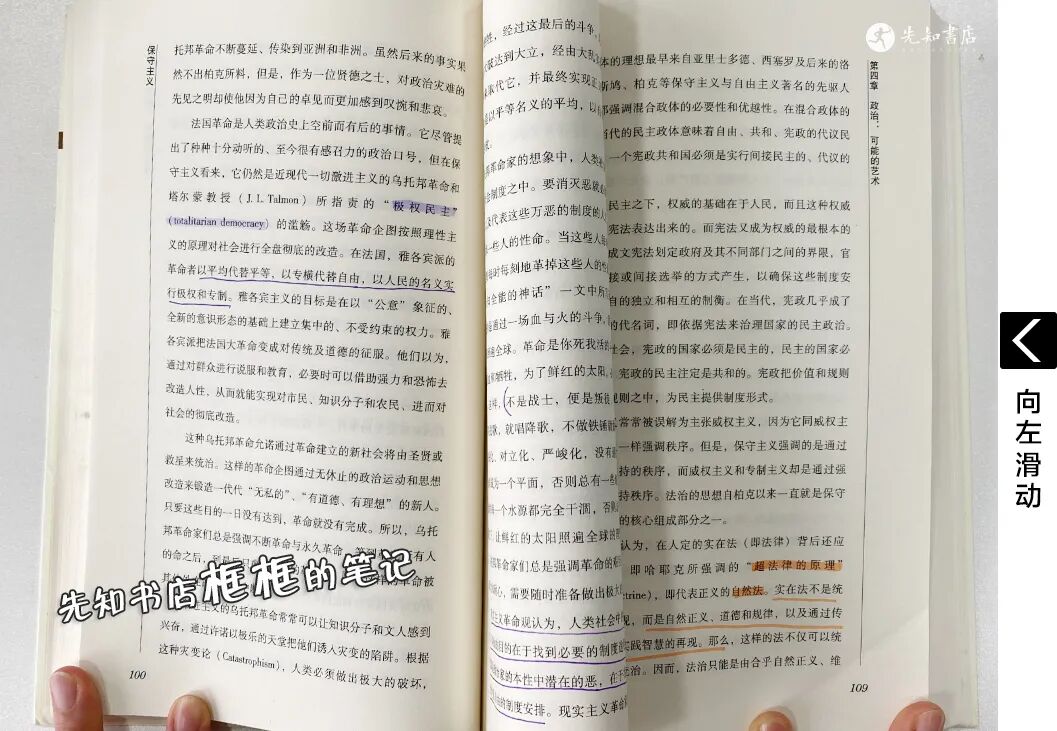 保守主义
托邦革命不断蔓延、传染到亚洲和非洲。虽然后来的事实果
然不出柏克所料，但是，作为一位贤德之士，对政治灾难的
先见之明却使他因为自己的卓见而更加感到叹惋和悲哀。
法国革命是人类政治史上空前而有后的事情。它尽管提
出了种种十分动听的、至今很有感召力的政治口号，但在保
守主义看来，它仍然是近现代一切激进主义的乌托邦革命和
塔尔蒙教授（J. L. Talmon）所指责的“极权民主”
(totalitarian democracy) 的滥觞。这场革命企图按照理性主
义的原理对社会进行全盘彻底的改造。在法国，雅各宾派的
革命者以平均代替平等，以专横代替自由，以人民的名义实
行极权和专制。雅各宾主义的目标是在以“公意”象征的、
全新的意识形态的基础上建立集中的、不受约束的权力。雅
各宾派把法国大革命变成对传统及道德的征服。他们以为，
通过对群众进行说服和教育，必要时可以借助强力和恐怖去
改造人性，从而就能实现对市民、知识分子和农民、进而对
社会的彻底改造。
这种乌托邦革命允诺通过革命建立的新社会将由圣贤或
救星来统治。这样的革命企图通过无休止的政治运动和思想
改造来锻造一代代“无私的”、“有道德、有理想”的新人。
只要这些目的一日没有达到，革命就没有完成。所以，乌托
邦革命家们总是强调不断革命与永久革命
有人
的命之后，到
革命被
进主义的乌托邦革命常常可以让知识分子和文人感到
兴奋，通过许诺以极乐的天堂把他们诱入灾变的陷阱。根据
这种灾变论（Catastrophism），人类必须做出极大的破坏，
100
，经过这最后的斗争
达到大立，经由大乱
取代它，并最终实现正
以平等名义的平均，以
革命家的想象中，人类
制度之中。要消灭恶就
代表这些万恶的制度的人
些人的性命。当这些人
时每刻地革掉这些人的
全能的神话”一文中所
通过一场血与火的斗争
全球。革命是你死我活的
牺牲，为了鲜红的太阳
不是战士，便是叛徒
就唱降歌，不做铁锤
对立化、严峻化，没有
为一个平面，否则总有一
一个水源都完全干涸，否则
让鲜红的太阳照遍全球的
革命家们总是强调革命的
心，需要随时准备做出极大
主义革命观认为，人类社会
目的在于找到必要的制度
的本性中潜在的恶，在于
的制度安排。现实主义革命
第四章 政治：可能的艺术
本的理想最早来自亚里士多德、西塞罗及后来的洛
斯鸠、柏克等保守主义与自由主义著名的先驱人
都强调混合政体的必要性和优越性。在混合政体的
当代的民主政体意味着自由、共和、宪政的代议民
一个宪政共和国必须是实行间接民主的、代议的
民主之下，权威的基础在于人民，而且这种权威
宪法表达出来的。而宪法又成为权威的最根本的
成文宪法划定政府及其不同部门之间的界限，官
接或间接选举的方式产生，以确保这些制度安
自的独立和相互的制衡。在当代，宪政几乎成了
的代名词，即依据宪法来治理国家的民主政治。
社会，宪政的国家必须是民主的，民主的国家必
宪政的民主注定是共和的。宪政把价值和规则
规则之中，为民主提供制度形式。
常常被误解为主张威权主义，因为它同威权主
一样强调秩序。但是，保守主义强调的是通过
持的秩序，而威权主义和专制主义却是通过强
持秩序。法治的思想自柏克以来一直就是保守
的核心组成部分之一。
认为，在人定的实在法（即法律）背后还应
即哈耶克所强调的“超法律的原理”
trine），即代表正义的自然法。实在法不是统
现，而是自然正义、道德和规律，以及通过传
实践智慧的再现。那么，这样的法不仅可以统
治。因而，法治只能是由合乎自然正义、维
109
先知书店
先知书店框框的笔记
向左滑动